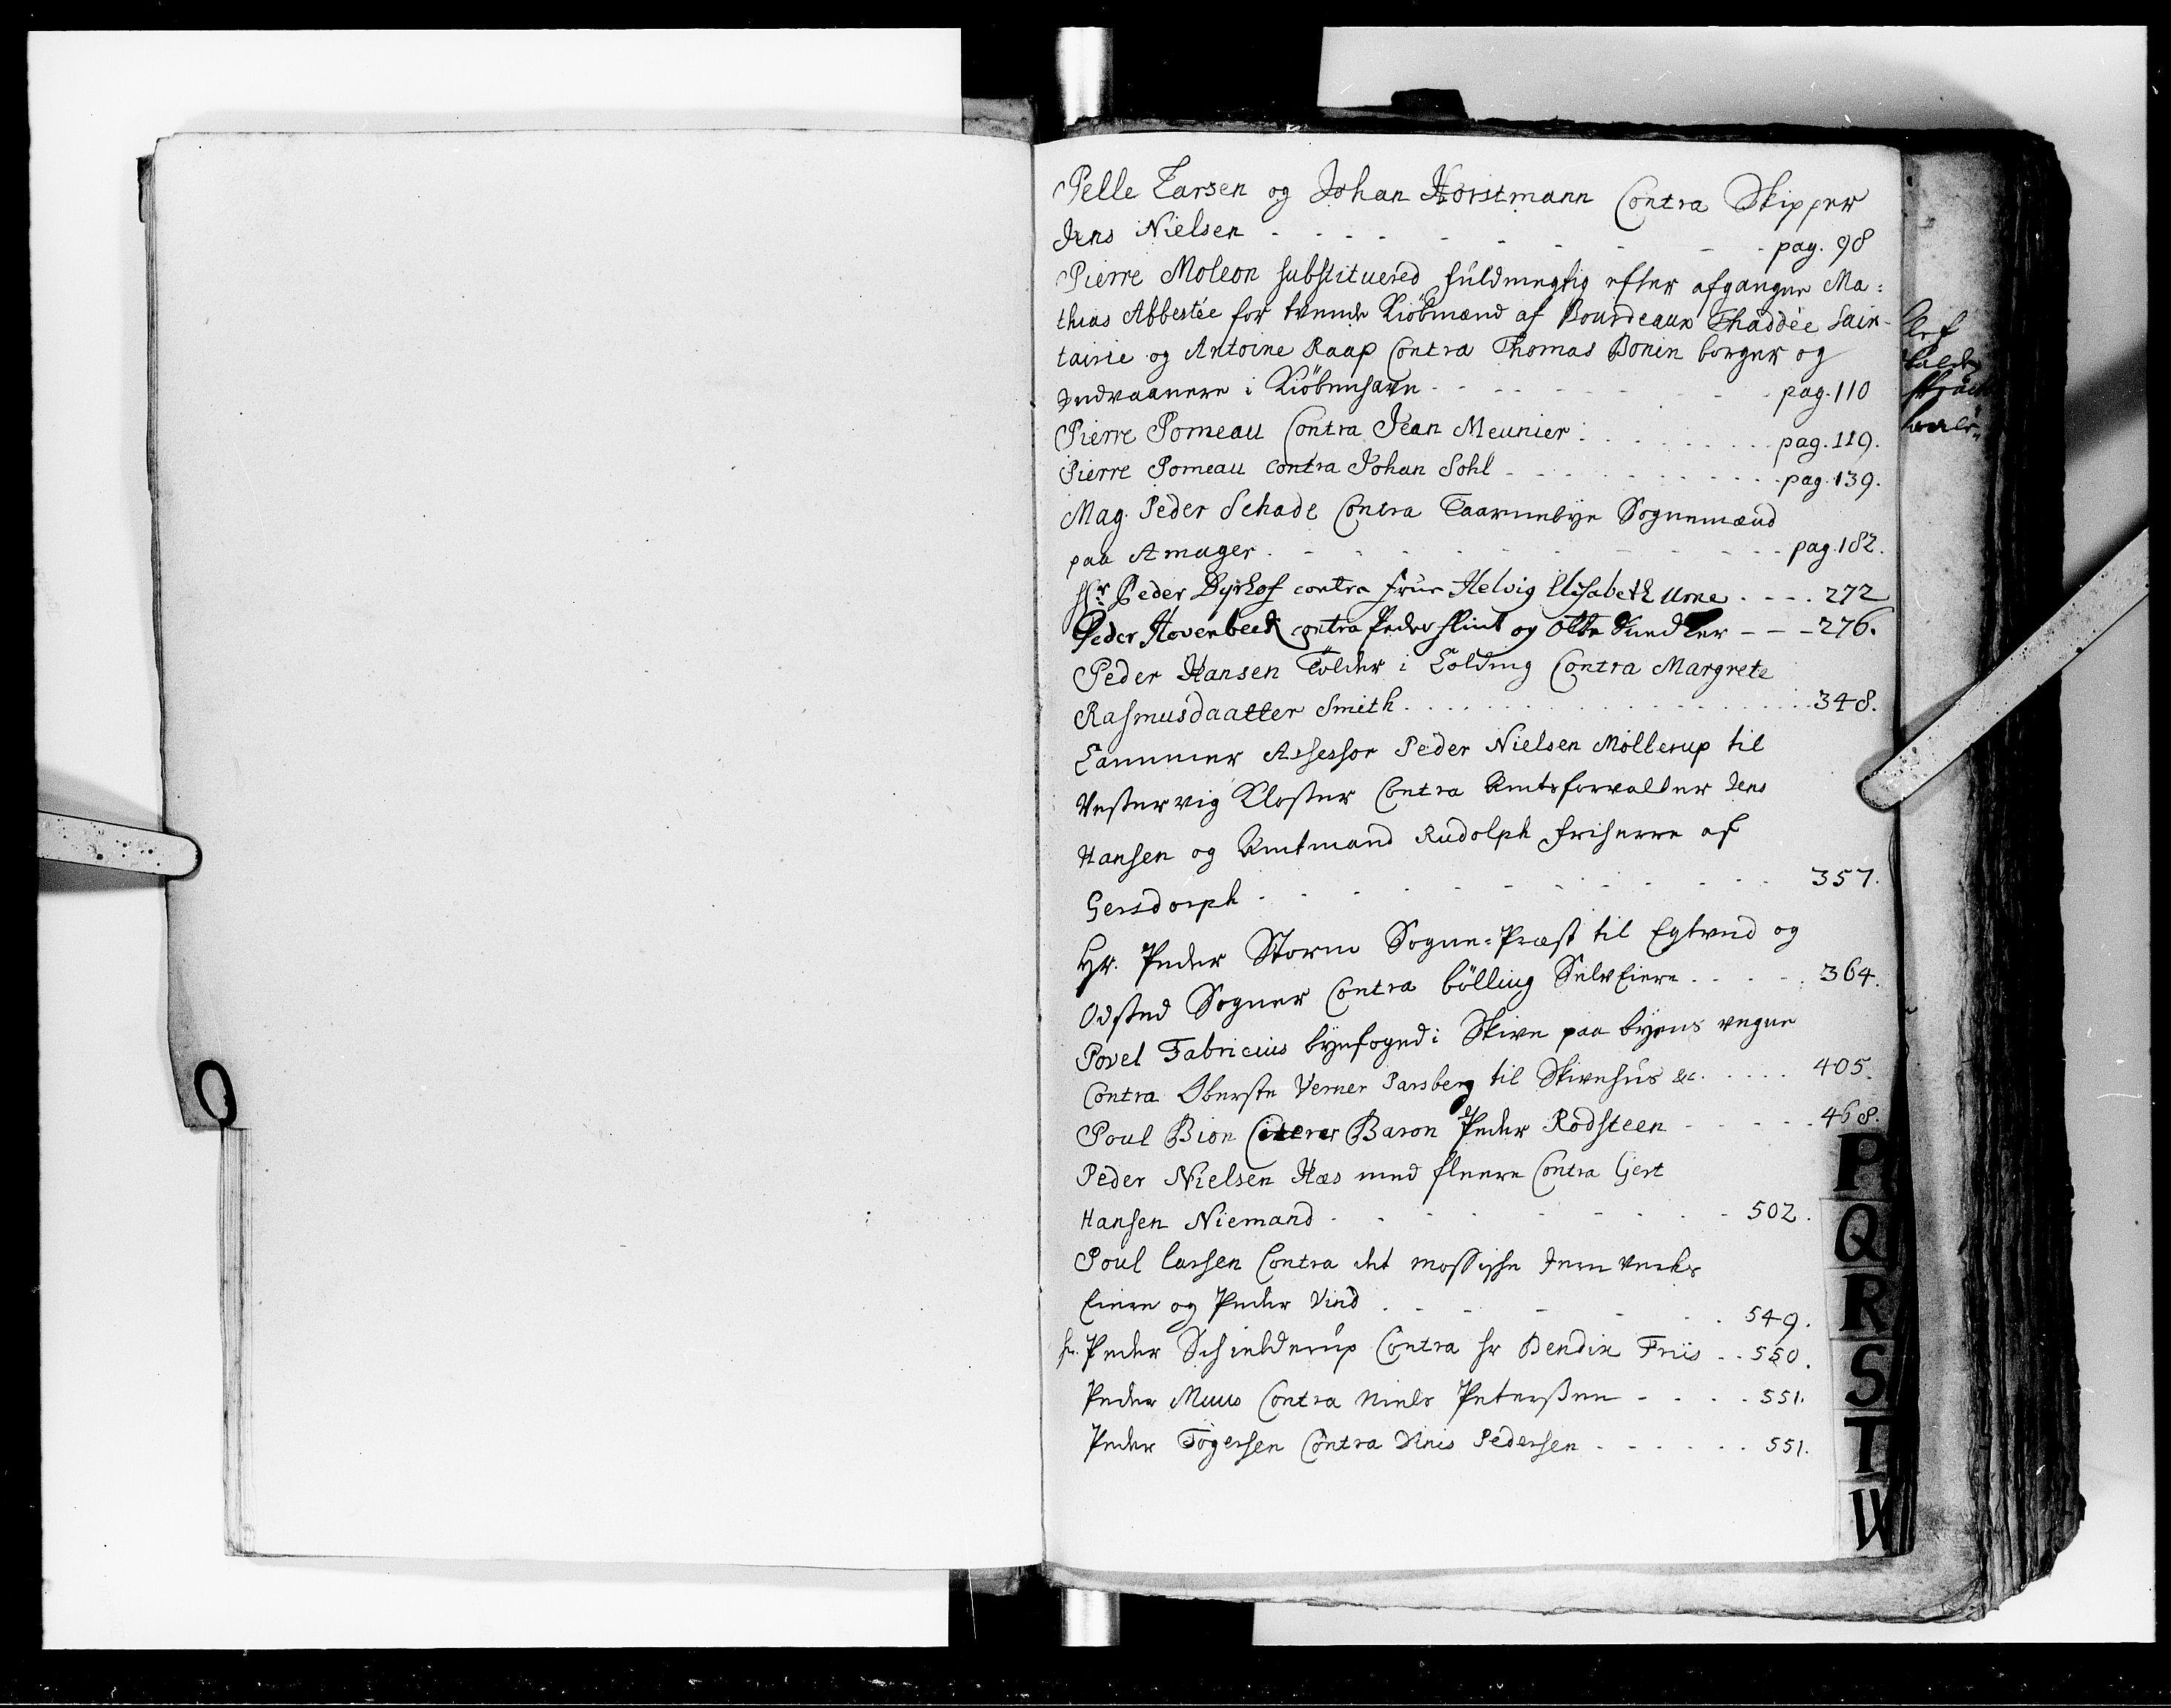 Pelle Larsen og Johan Horstmann Contra Skipper
Jens Nielsen - - - - - - - - - pag. 98
Pierre Moleon substituered fuldmegtig efter afgangne Ma=
thias Abbestée for tvende Kiöbmænd af Bourdeaux Thaddée Sain-
tairie og Antoine Raap Contra Thomas Bonin borger og
Indvaanere i Kiöbenhavn - - - - - - pag. 110
Pierre Pomeau Contra Jean Meunier . . . . . . pag. 119.
Pierre Pomeau contra Johan Sohl - - - - - - pag. 139.
Mag. Peder Schade Contra Taarnebye Sognemænd
paa Amager - - - - - - - - - - pag. 182.
Hr. Peder Dyrhof contra Frue Helvig Elisabeth Urne . - - . 272
Peder Hovenbeck contra Peder Flint og Otto - - - 276.
Peder Hansen Tolder i Colding Contra Margrete
Rasmusdaatter Smith . . . . . . . . . . 348.
Cammer Assessor Peder Nielsen Möllerup til
Vestervig Kloster Contra Amtsforvalter Jens
Hansen og Amtmand Rudolph friherre af
Gersdorph - - - - - - - - - - 357.
Hr. Peder Storm Sogne=Præst til Egtved og
Ödsted Sogner Contra bölling SelvEiere . - - . 364.
Povel Fabricius byefoged i Skive paa byens vegne
Contra Oberste Verner Parsberg til Skivehuus &c. . . . . 405.
Poul Bion Citerer Baron Peder Rodsteen - - - - - 468.
Peder Nielsen Høs med fleere Contra Gert
Hansen Niemand - - - - - - - - - 502.
Poul Larsen Contra det mossiske Jern Verks
Eiere og Peder Vind . - - - - . . 549.
hr. Peder Schielderup Contra hr Bendix Friis . . 550.
Peder Muus Contra Niels Peterssen - - - . 551.
Peder Tögersen Contra Dinis Pedersen . - - - - . 551.
P
Q
R
S
T
W